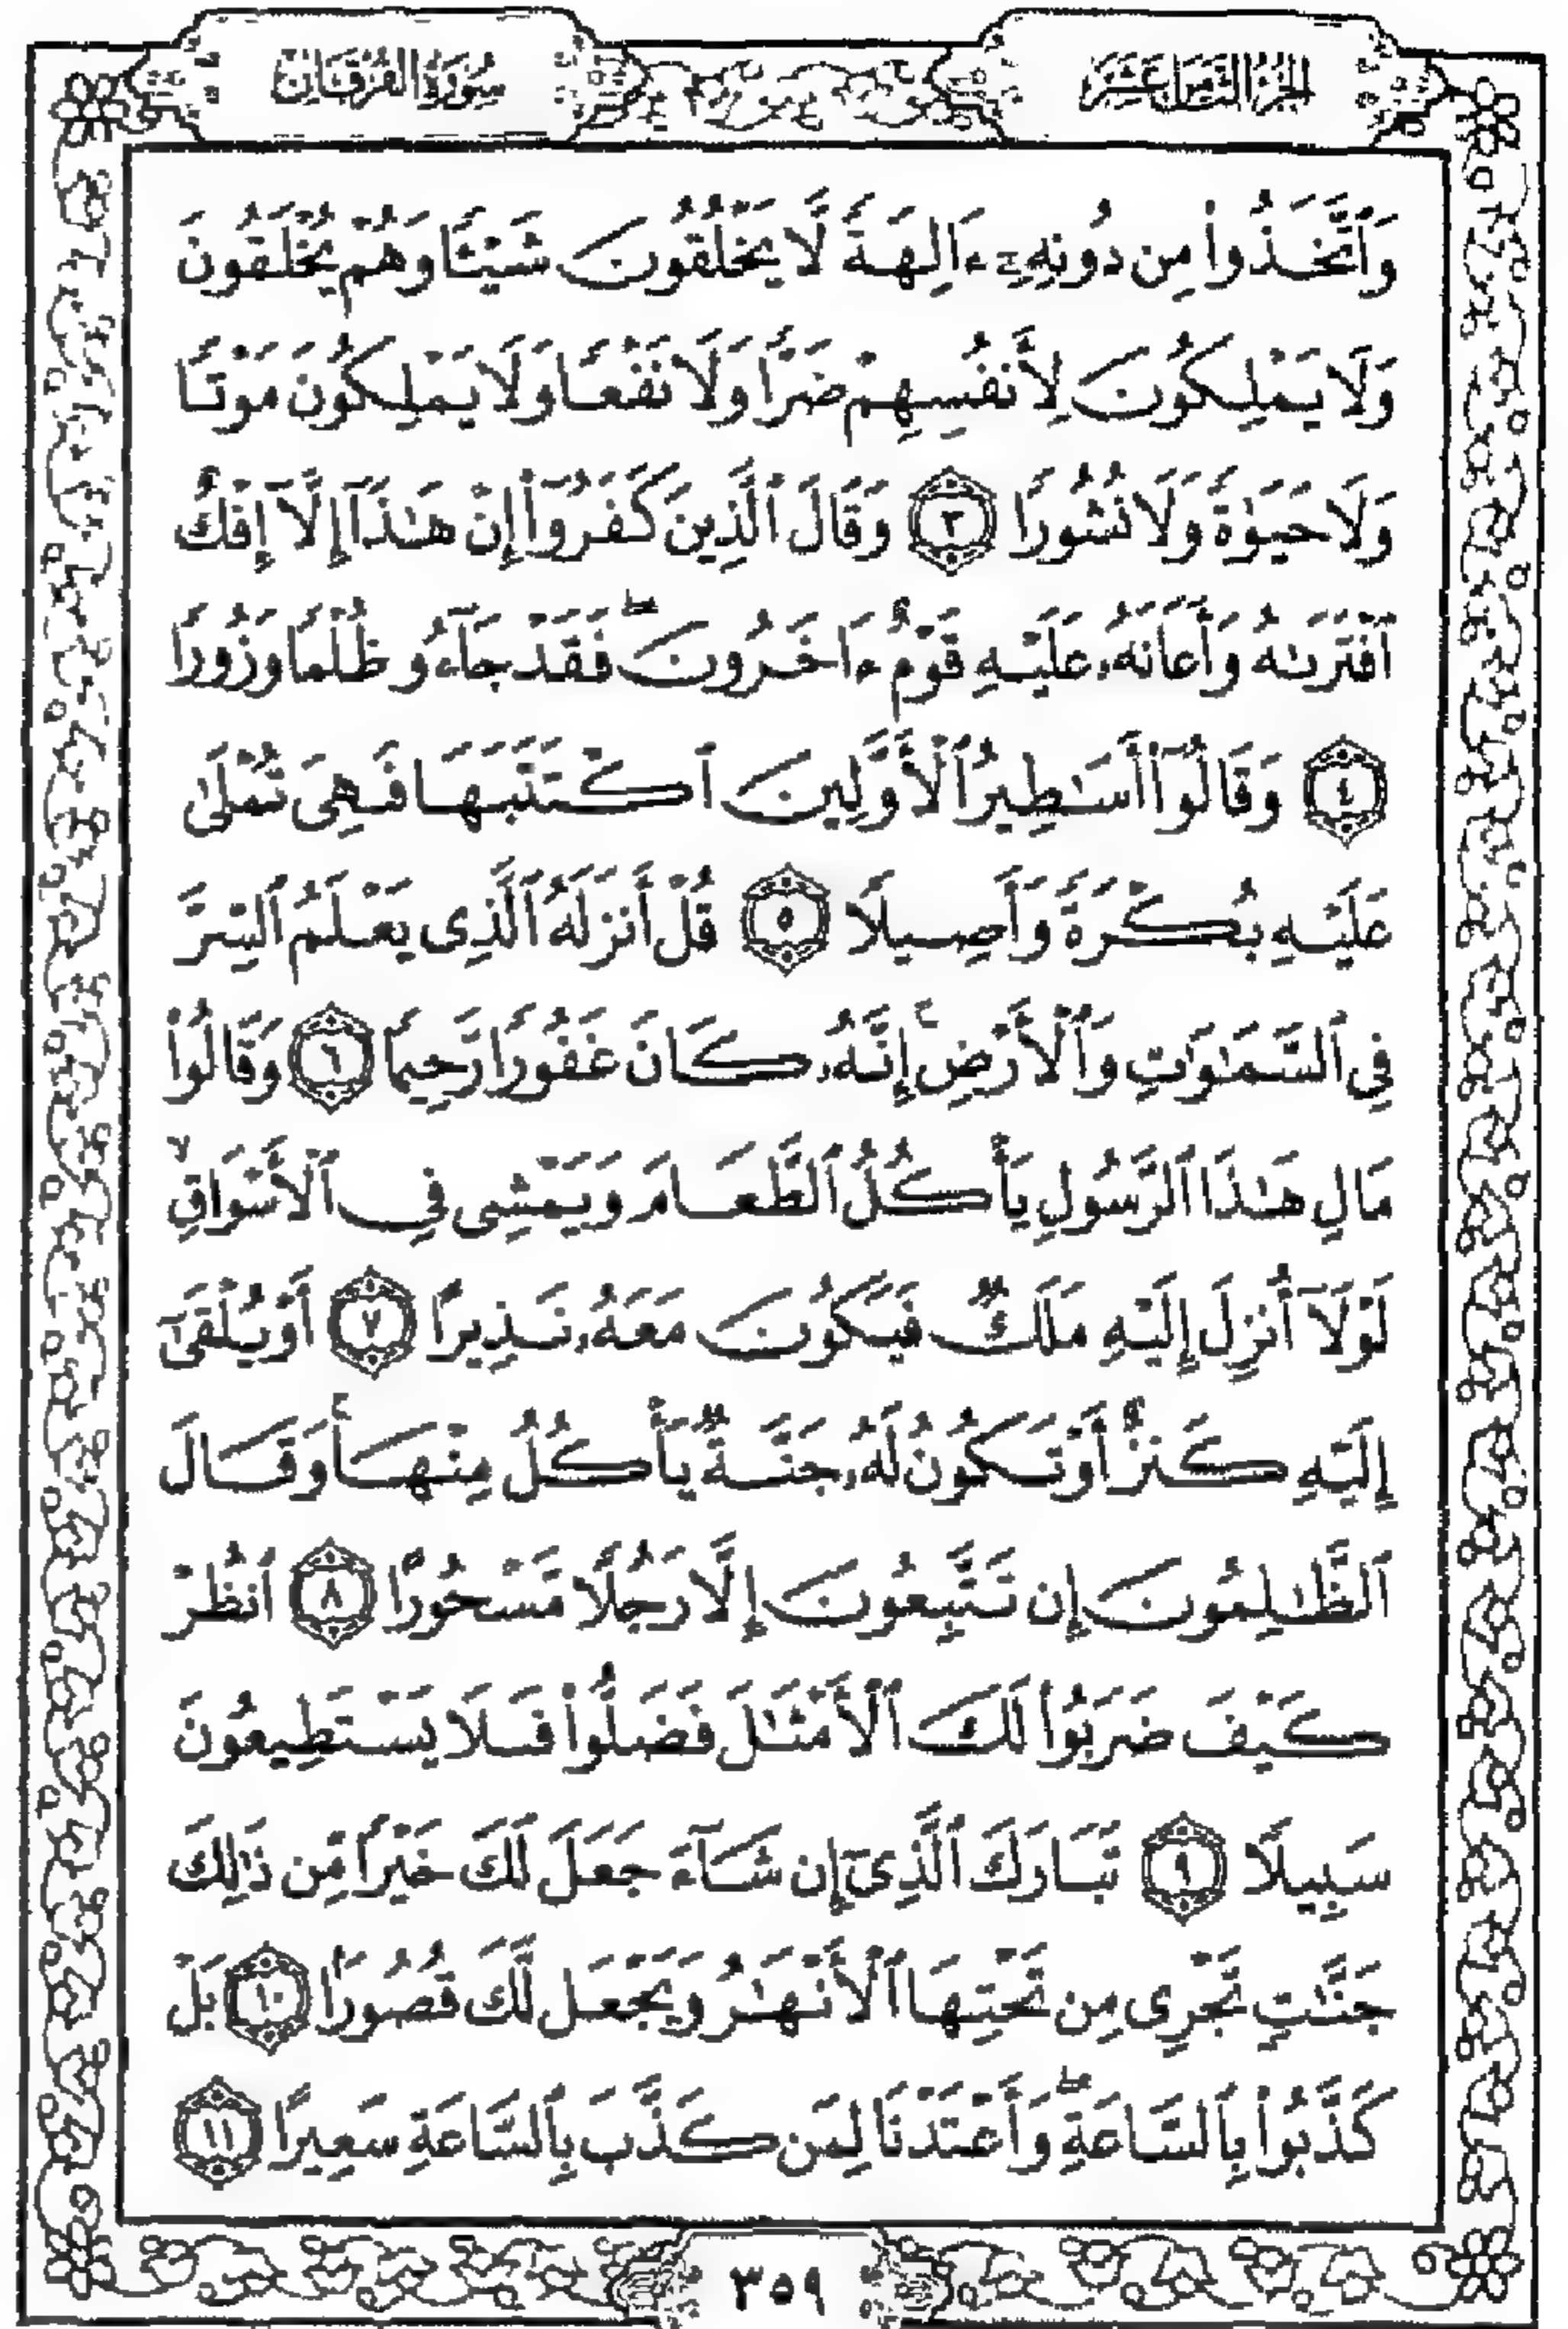 الجزء الثامن عشر
سورة الفرقان
وَٱتَّخَذُوا۟ مِن دُونِهِۦٓ ءَالِهَةً لَّا يَخْلُقُونَ شَيْـًٔا وَهُمْ يُخْلَقُونَ
وَلَا يَمْلِكُونَ لِأَنفُسِهِمْ ضَرًّا وَلَا نَفْعًا وَلَا يَمْلِكُونَ مَوْتًا
وَلَا حَيَوٰةً وَلَا نُشُورًا ٣ وَقَالَ ٱلَّذِينَ كَفَرُوٓا۟ إِنْ هَٰذَآ إِلَّآ إِفْكٌ
ٱفْتَرَىٰهُ وَأَعَانَهُۥ عَلَيْهِ قَوْمٌ ءَاخَرُونَ ۖ فَقَدْ جَآءُو ظُلْمًا وَزُورًا
٤ وَقَالُوٓا۟ أَسَٰطِيرُ ٱلْأَوَّلِينَ ٱكْتَتَبَهَا فَهِىَ تُمْلَىٰ
عَلَيْهِ بُكْرَةً وَأَصِيلًا ٥ قُلْ أَنزَلَهُ ٱلَّذِى يَعْلَمُ ٱلسِّرَّ
فِى ٱلسَّمَٰوَٰتِ وَٱلْأَرْضِ ۚ إِنَّهُۥ كَانَ غَفُورًا رَّحِيمًا ٦ وَقَالُوا۟
مَالِ هَٰذَا ٱلرَّسُولِ يَأْكُلُ ٱلطَّعَامَ وَيَمْشِى فِى ٱلْأَسْوَاقِ ۙ
لَوْلَآ أُنزِلَ إِلَيْهِ مَلَكٌ فَيَكُونَ مَعَهُۥ نَذِيرًا ٧ أَوْ يُلْقَىٰٓ
إِلَيْهِ كَنزٌ أَوْ تَكُونُ لَهُۥ جَنَّةٌ يَأْكُلُ مِنْهَا ۚ وَقَالَ
ٱلظَّٰلِمُونَ إِن تَتَّبِعُونَ إِلَّا رَجُلًا مَّسْحُورًا ٨ ٱنظُرْ
كَيْفَ ضَرَبُوا۟ لَكَ ٱلْأَمْثَٰلَ فَضَلُّوا۟ فَلَا يَسْتَطِيعُونَ
سَبِيلًا ٩ تَبَارَكَ ٱلَّذِىٓ إِن شَآءَ جَعَلَ لَكَ خَيْرًا مِّن ذَٰلِكَ
جَنَّٰتٍ تَجْرِى مِن تَحْتِهَا ٱلْأَنْهَٰرُ وَيَجْعَل لَّكَ قُصُورًا ١٠ بَلْ
كَذَّبُوا۟ بِٱلسَّاعَةِ ۖ وَأَعْتَدْنَا لِمَن كَذَّبَ بِٱلسَّاعَةِ سَعِيرًا ١١
٣٥٩